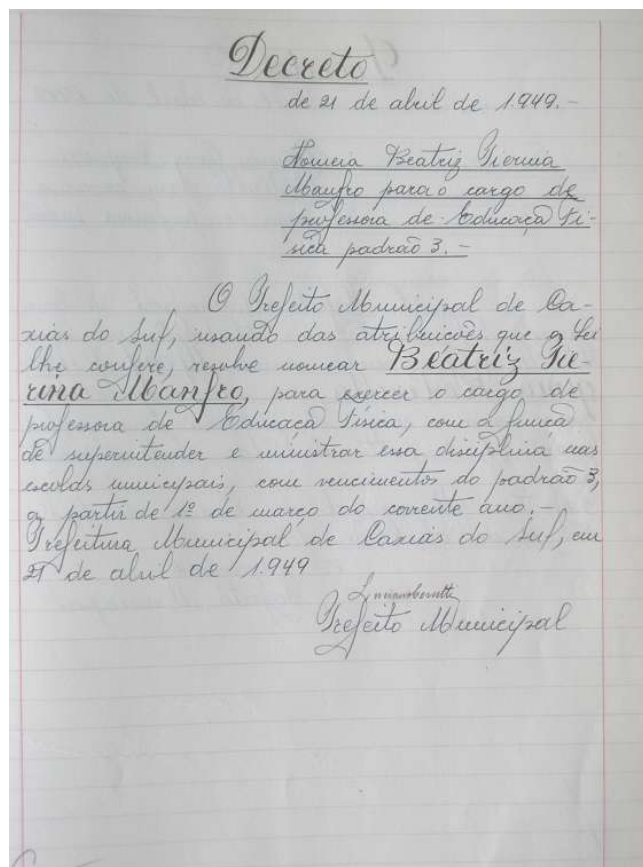 Decreto
de 21 de abril de 1.949.-
Nomeia Beatriz Pierina
Manfro para o cargo de
professora de Educaçã Fí-
sica padrão 3.-
O Prefeito Municipal de Ca-
xias do Sul, usando das atribuicões que a Lei
lhe confere, resolve nomear Beatriz Pie-
rina Manfro, para exercer o cargo de
professora de Educaçã Física, com a funcã
de superintender e ministrar essa disciplina nas
escolas municipais, com vencimentos do padrão 3,
a partir de 1º de março do corrente ano.-
Prefeitura Municipal de Caxias do Sul, em
21 de abril de 1.949
Prefeito Municipal